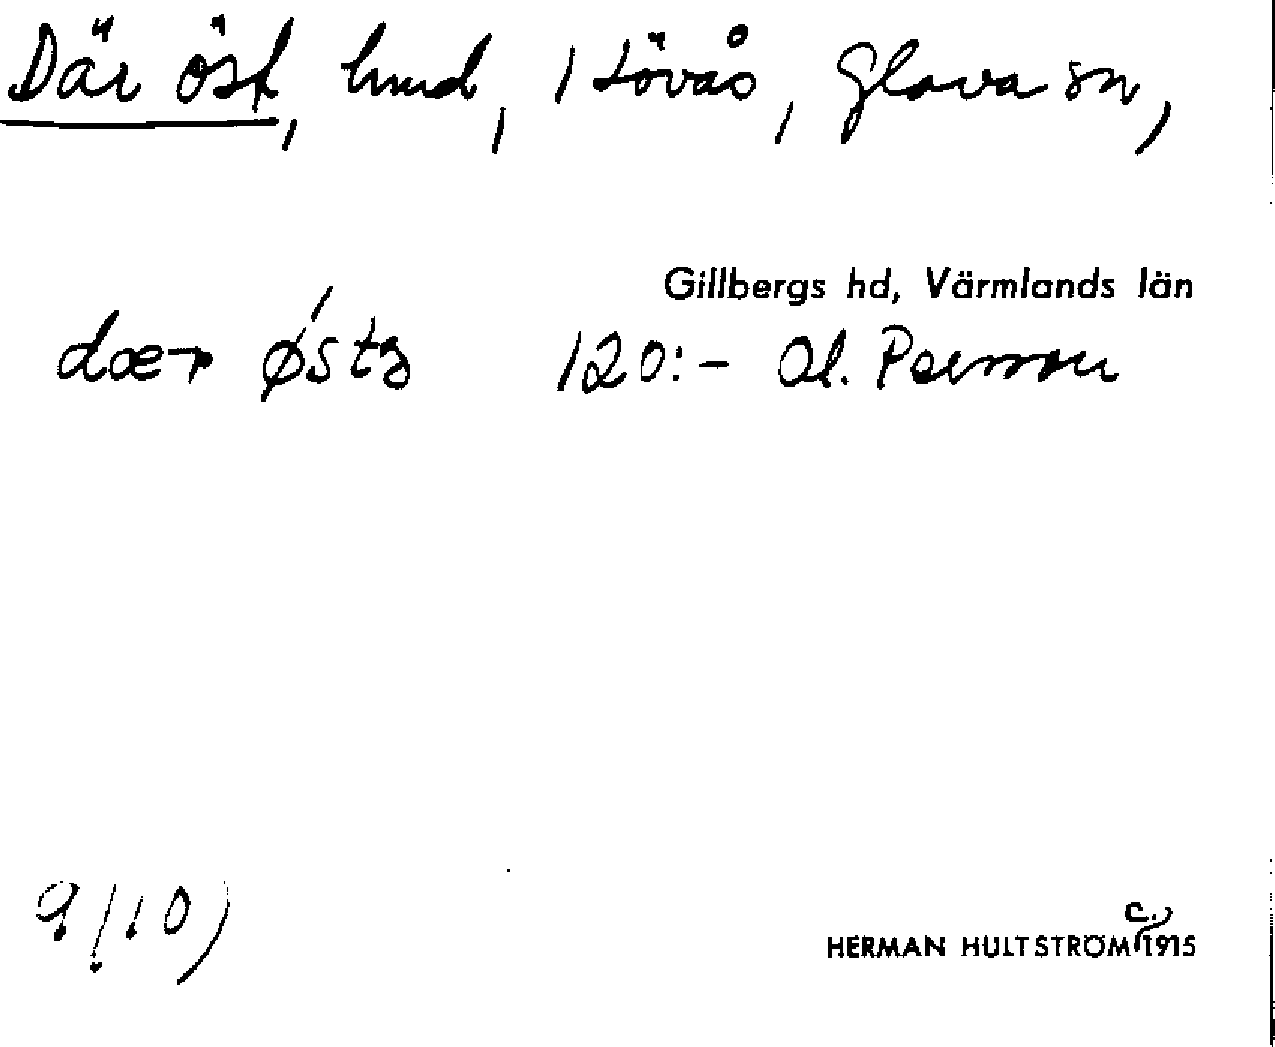 Där öst, hmd, 1 Lövås, Glava sn,
Gillbergs hd, Värmlands län
dær østa 120:- Ol. Persson
9/10)
c.
HERMAN HULTSTRÖM 1915